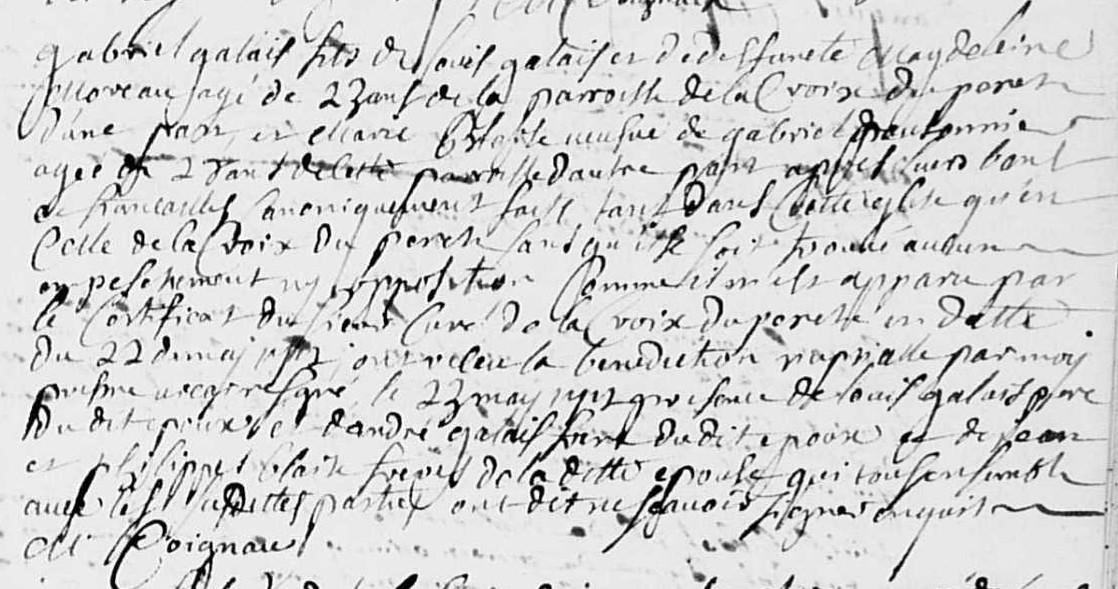 gabriel galais fils de louis galais et de deffuncte Magdeleine
Moreau agé de 23 ans de la parroisse de la Croix du perche
d'une part et Marie Blaise veufve de gabriel
agée de 2 ans de cette parroisse d'autre part apres leurs bans
et fiancailles canoniquement faits tant dans cette eglise qu'en
Celle de la Croix du perche sans qu'il se soit trouvé aucun
empeschement ny opposition Comme il m'est apparu par
le Certificat du sieur Curé de la Croix du perche en datte
du 22 de may ont receu la benediction nuptialle par moy
prestre vicaire le 23 may presence de louis galais pere
du dit epoux et d'andré galais frere du dit epoux et de jean
et philippes blaise freres de la ditte epouse qui tous ensemble
avec les susdittes parties ont dit ne scavoir signer enquis
M Coignau